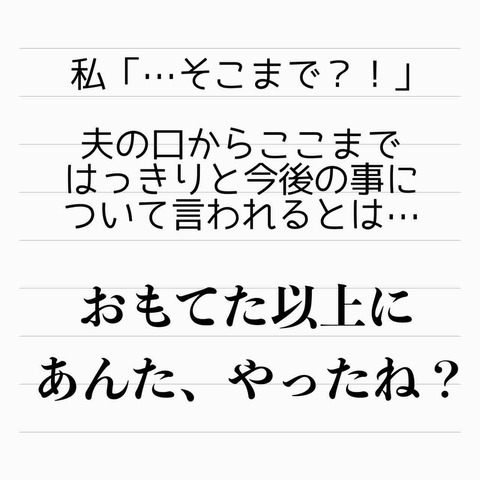 私「…そこまで？！」
夫の口からここまで
はっきりと今後の事に
ついて言われるとは…
おもてた以上に
あんた、やったね？